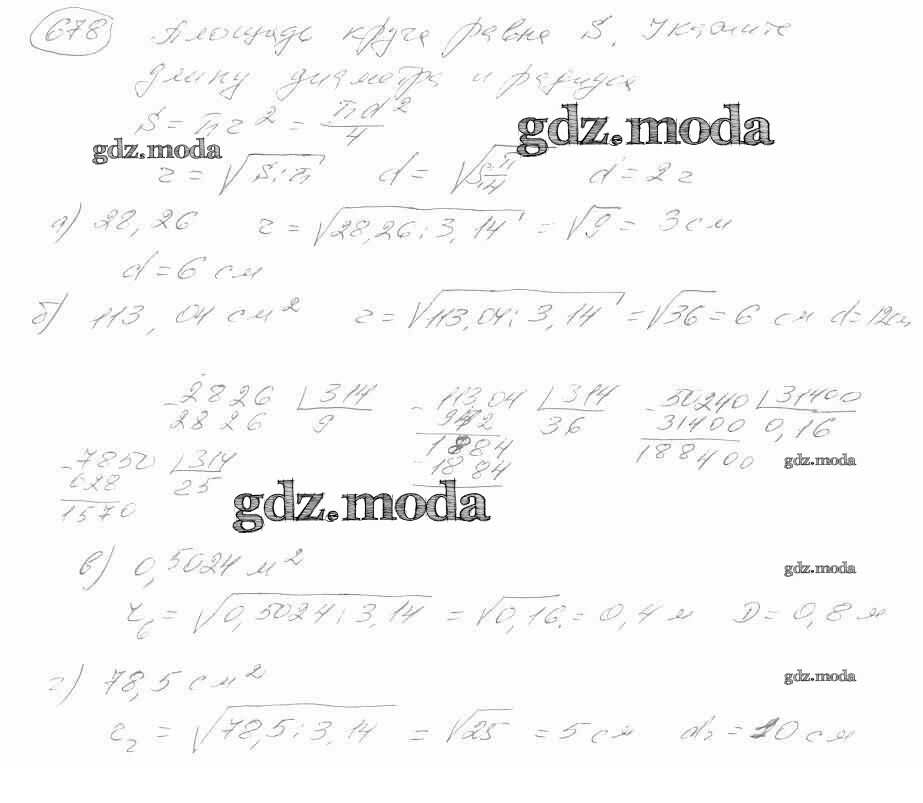 678 Площадь круга равна S. Укажите
длину диаметра и радиуса
S = πr² = πd²/4
gdz.moda
gdz.moda
r = √S:π d = √S:π/4 d = 2r
а) 28,26 r = √28,26:3,14 = √9 = 3 см
d = 6 см
б) 113,04 см² r = √113,04:3,14 = √36 = 6 см d = 12см
-2826 |314 -113,04 |314 -50240 |31400
2826 9 942 36 31400 0,16
1884 188400
-7850 |314 -1884 gdz.moda
628 25
1570
gdz.moda
в) 0,5024 м² gdz.moda
r₆ = √0,5024:3,14 = √0,16 = 0,4 м D = 0,8 м
г) 78,5 см² gdz.moda
r₂ = √78,5:3,14 = √25 = 5 см d₂ = 10 см